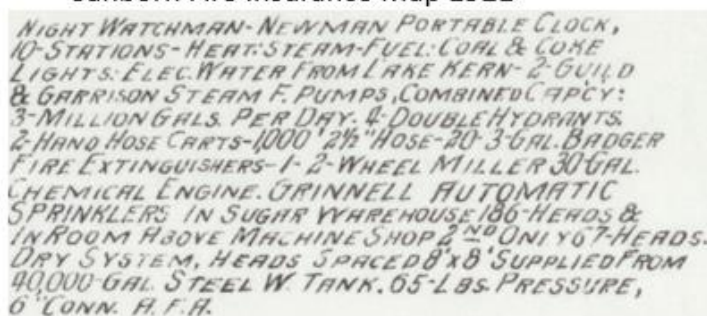 Sanborn Fire Insurance Map 1922
NIGHT WATCHMAN-NEWMAN PORTABLE CLOCK,
10-STATIONS-HEAT: STEAM-FUEL: COAL & COKE
LIGHTS: ELEC. WATER FROM LAKE KERN-2-GUILD
& GARRISON STEAM F. PUMPS, COMBINED CAPCY:
3-MILLION GALS. PER DAY. 4-DOUBLE HYDRANTS.
2-HAND HOSE CARTS-1,000' 2½" HOSE-20-3-GAL. BADGER
FIRE EXTINGUISHERS-1-2-WHEEL MILLER 30 GAL.
CHEMICAL ENGINE. GRINNELL AUTOMATIC
SPRINKLERS IN SUGAR WAREHOUSE 186-HEADS &
IN ROOM ABOVE MACHINE SHOP 2ND ONLY 67-HEADS.
DRY SYSTEM, HEADS SPACED 8'x8' SUPPLIED FROM
40,000-GAL. STEEL W. TANK. 65-LBS. PRESSURE,
6" CONN. A.F.A.